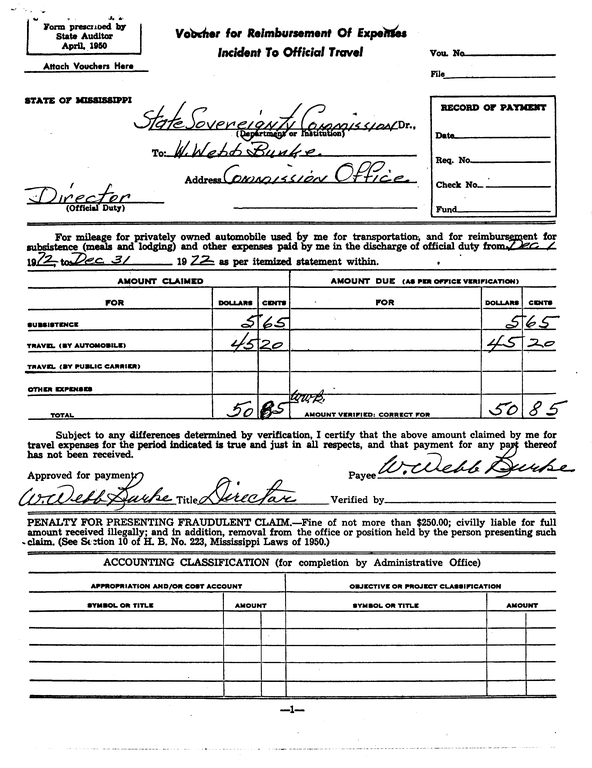 Form prescribed by
State Auditor
April, 1950
Attach Vouchers Here
Voucher for Reimbursement Of Expenses
Incident To Official Travel
Vou. No.
File
STATE OF MISSISSIPPI
State Sovereignty Commission Dr.,
(Department or Institution)
To: W. Webb Burke.
Address Commission Office
Director
(Official Duty)
RECORD OF PAYMENT
Date
Req. No.
Check No.
Fund
For mileage for privately owned automobile used by me for transportation, and for reimbursement for
subsistence (meals and lodging) and other expenses paid by me in the discharge of official duty from Dec 1
1972, to Dec 31 1972 as per itemized statement within.
AMOUNT CLAIMED AMOUNT DUE (AS PER OFFICE VERIFICATION)
FOR DOLLARS CENTS FOR DOLLARS CENTS
SUBSISTENCE 5 65 5 65
TRAVEL (BY AUTOMOBILE) 45 20 45 20
TRAVEL (BY PUBLIC CARRIER)
OTHER EXPENSES
W.W.B.
TOTAL 50 85 AMOUNT VERIFIED: CORRECT FOR 50 85
Subject to any differences determined by verification, I certify that the above amount claimed by me for
travel expenses for the period indicated is true and just in all respects, and that payment for any part thereof
has not been received.
Approved for payment: Payee W. Webb Burke
W. Webb Burke Title Director Verified by
PENALTY FOR PRESENTING FRAUDULENT CLAIM.—Fine of not more than $250.00; civilly liable for full
amount received illegally; and in addition, removal from the office or position held by the person presenting such
claim. (See Section 10 of H. B. No. 223, Mississippi Laws of 1950.)
ACCOUNTING CLASSIFICATION (for completion by Administrative Office)
APPROPRIATION AND/OR COST ACCOUNT OBJECTIVE OR PROJECT CLASSIFICATION
SYMBOL OR TITLE AMOUNT SYMBOL OR TITLE AMOUNT
—1—